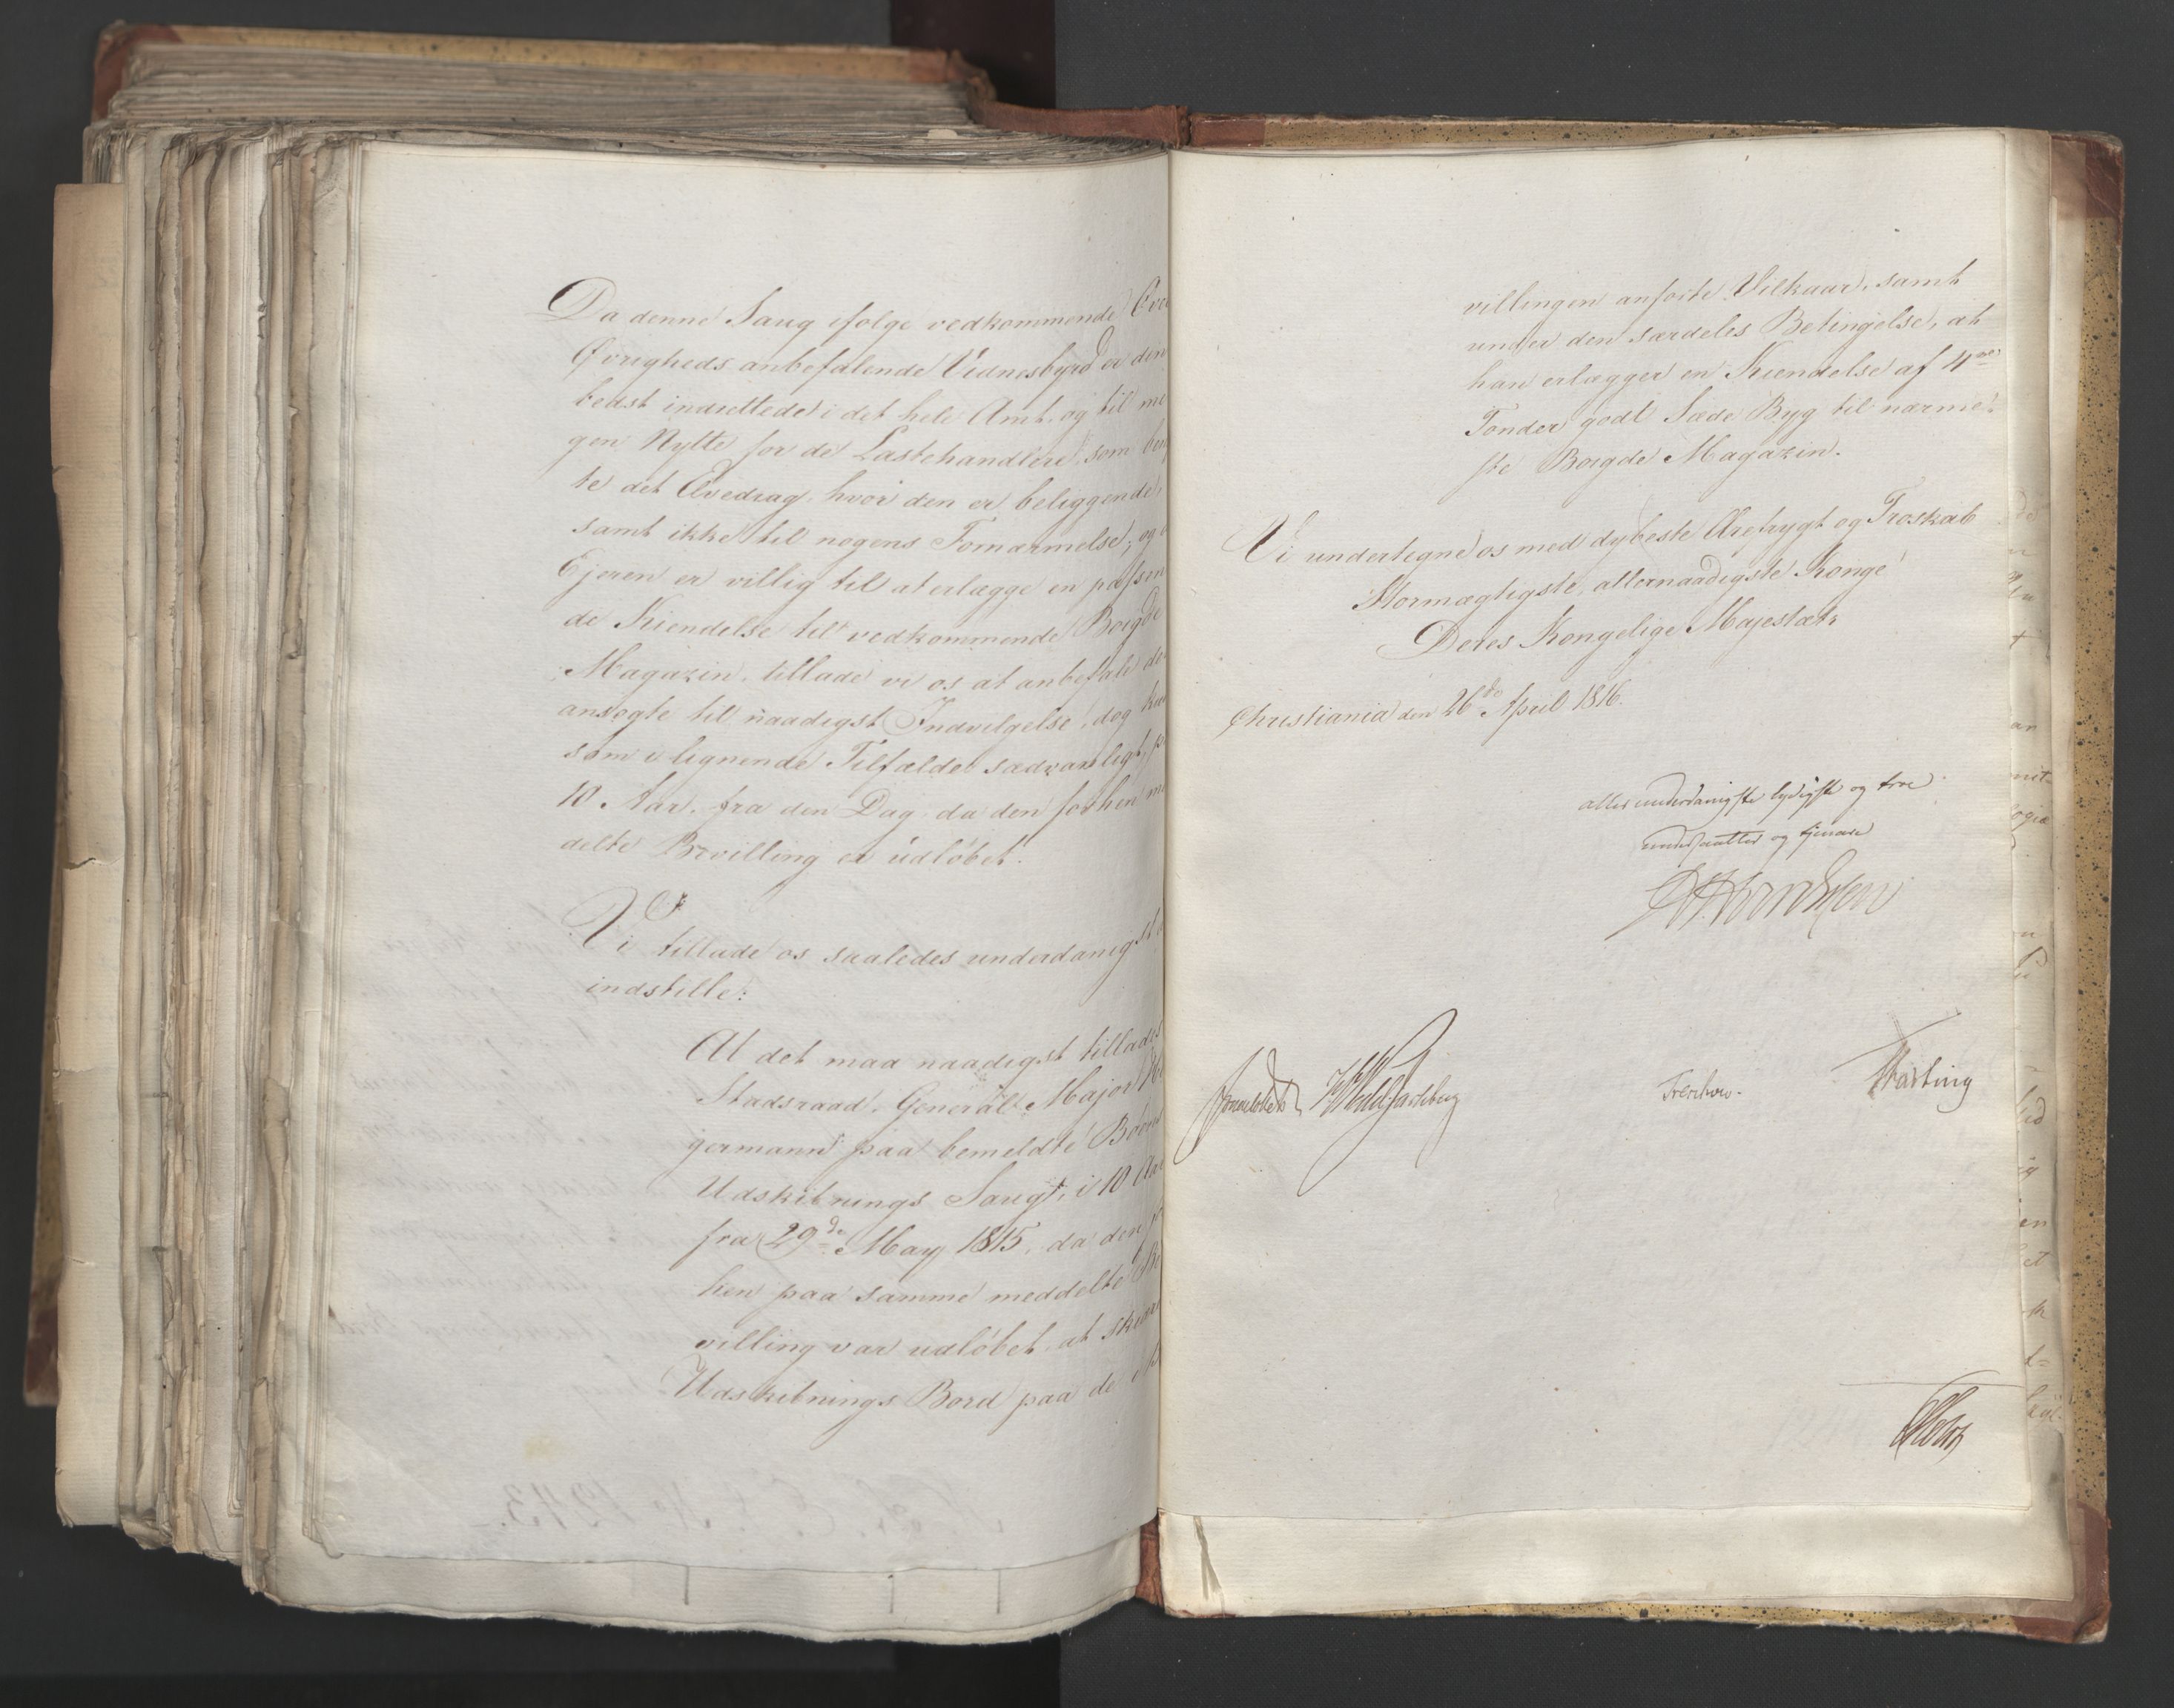 Da denne Saug ifølge vedkommende
Øvrigheds anbefalende Vidnesbyrd er den
bedst indrettede i det hele Amt, og til me
gen Nytte for de Lasthandlere, som
te det Overdrag, hvor den er beliggende,
samt ikke til nogens Fornærmelse, og
Ejeren er villig til at erlægge en passen
de Kiendelse til vedkommende Boigde
Magazin, tillade vi os at anbefale de
ansøgte til naadigst Indvilgelse, dog kun
som i lignende Tilfælde sædvanligt, p
10 Aar, fra den Dag da den forhen me
delte Bevilling er udløbet.
Vi tillade os saaledes underdanigst
indstille:
At det maa naadigst tillades
Stadsraad, General Major He
germann paa bemeldte
Udskibnings Saug, i 10 Aar
fra 29de May 1815, da den f
hen paa samme meddelte Be
villing var udløbet, at skiære
Udskibnings Bord paa de i
villingen anførte Vilkaar, samt
under den særdeles Betingelse, at
han erlægger en Kiendelse af 4re
Tønder godt Sæde Byg til nærme
ste Boigde Magazin.
Vi undertegne os med dybeste Ærefrygt og Troskab
Stormægtigste, allernaadigste Konge
Deres Kongelige Majestæts
Christiania den 26de April 1816.
allerunderdanigste lydigste og troe
undersaatter og tjenere
Treschow.